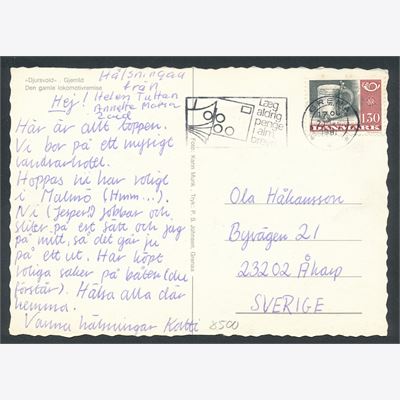 »Djursvold« . Gjerrild
Den gamle lokomotivremise
Hälsningar
från
Hej! Helen Tultan
Annette Maria
Här är allt toppen.
Vi bor på ett mysigt
landvarhotel.
Hoppas ni har roligt
i Malmö (Hmm...).
Ni (Jesper!) jobbar och
sliter på ert sätt och jag
på mitt, så det går ju
på ett ut. Har köpt
roliga saker på båten (du
förstår). Hälsa alla där
hemma.
Varma hälsningar Katti
8500
Foto: Karin Munk . Tryk: P. S. Johnsen, Grenaa
Læg
aldrig
penge
i alm.
breve
GRENAA
DANMARK
130
Ola Håkansson
Byvägen 21
23202 Åkarp
SVERIGE